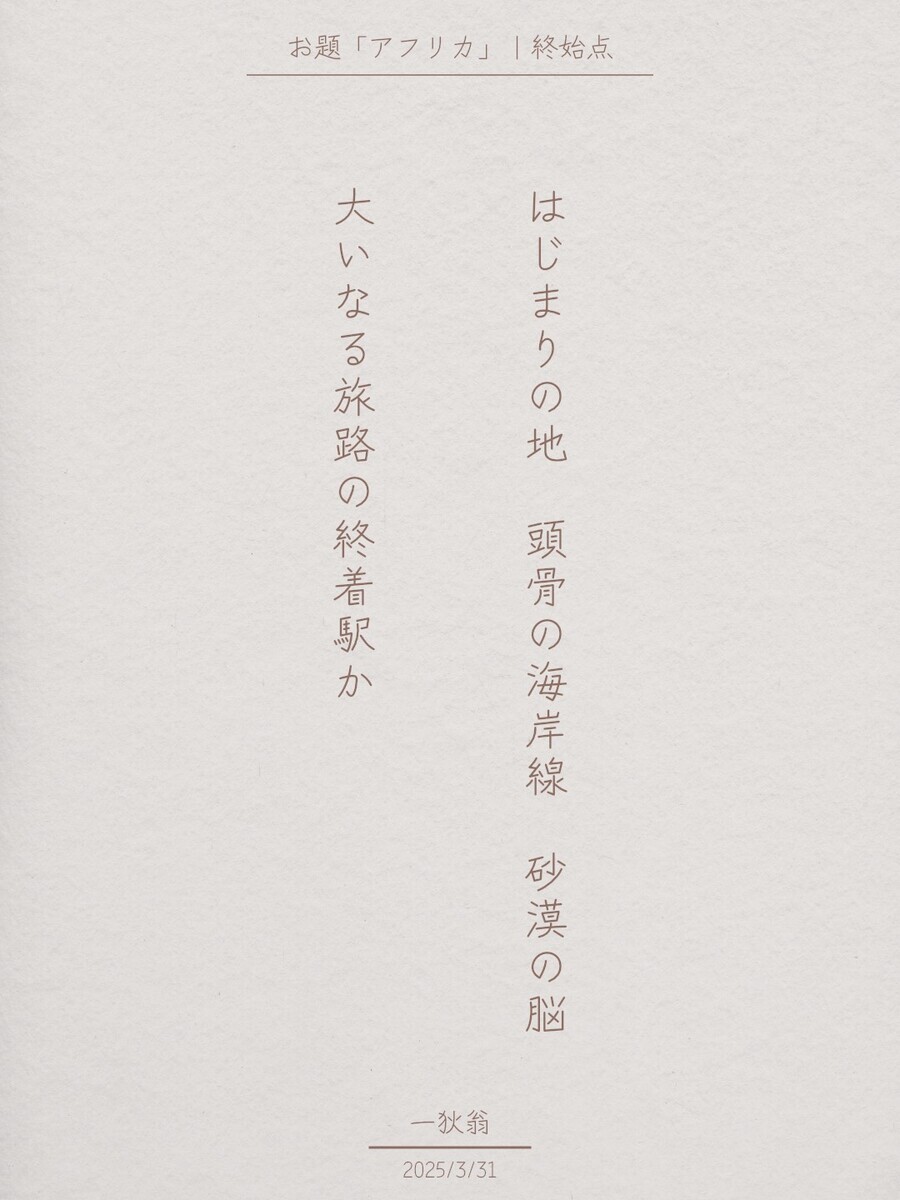 お題「アフリカ」｜終始点
はじまりの地　頭骨の海岸線　砂漠の脳
大いなる旅路の終着駅か
一狄翁
2025/3/31